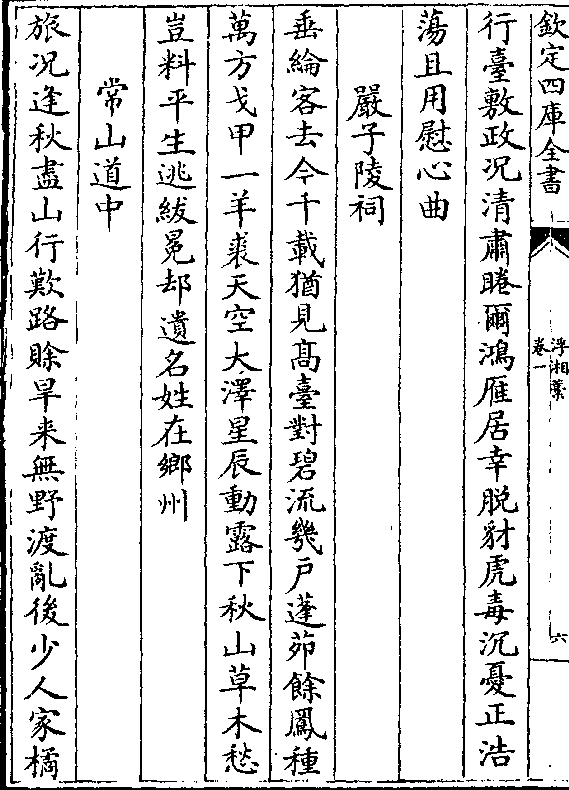 欽定四庫全書
浮湘藁
卷一
六
行臺敷政況清肅睠爾鴻雁居幸脫豺虎毒沉憂正浩
蕩且用慰心曲
嚴子陵祠
垂綸客去今千載猶見髙臺對碧流幾戶蓬茆餘鳳種
萬方戈甲一羊裘天空大澤星辰動露下秋山草木愁
豈料平生逃紱冕却遺名姓在鄉州
常山道中
旅况逢秋盡山行歎路賖旱来無野渡亂後少人家橘